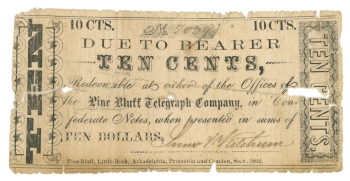 10 CTS. No. 10 CTS.
DUE TO BEARER
TEN CENTS,
Redeemable at either of the Offices of
the Pine Bluff Telegraph Company, in Con-
federate Notes, when presented in sums of
TEN DOLLARS.
Pine Bluff, Little Rock, Arkadelphia, Princeton and Camden, Sept., 1862.
TEN
TEN CENTS